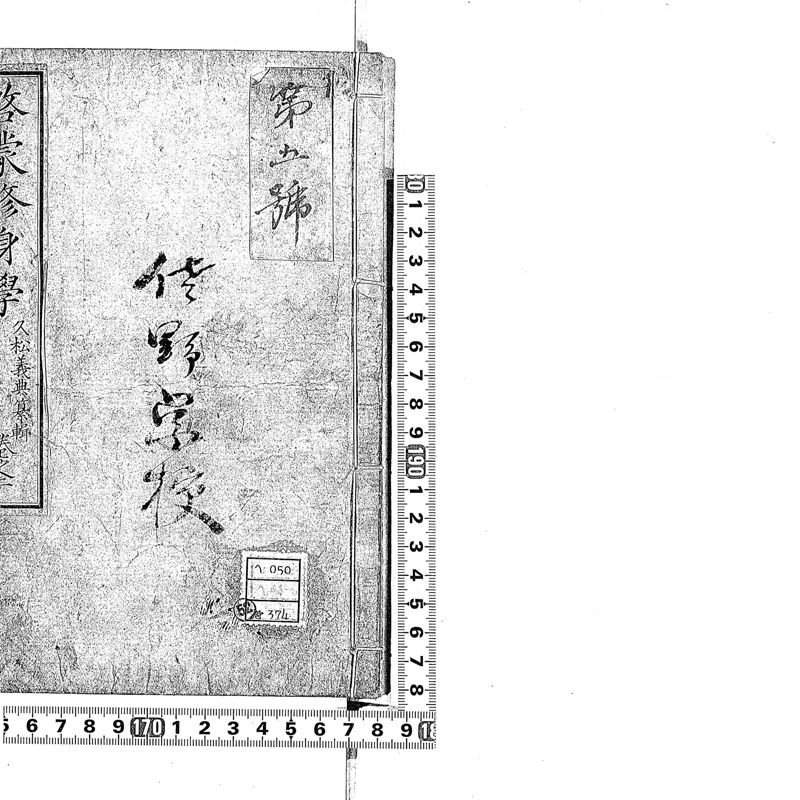 第五號
佐野
校
啓蒙修身學
久松義典纂輯
050
374
1 2 3 4 5 6 7 8 9 190 1 2 3 4 5 6 7 8
6 7 8 9 170 1 2 3 4 5 6 7 8 9